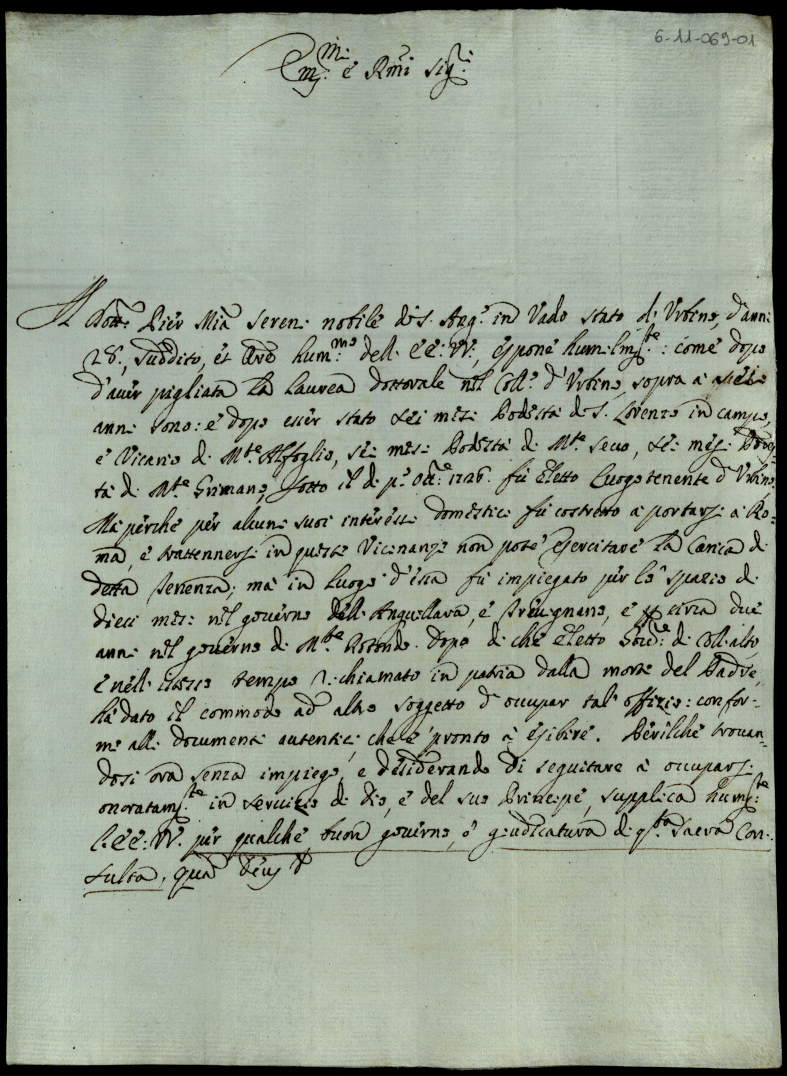 6-11-069-01
Emi: e Rmi Sig:
Il Dott: Pier Mia Sereni nobile di S. Ang: in Vado stato di Urbino, d'anni
28:, suddito, et Orẽ hum:mo dell' EE: VV:, espone humilmte: come dopo
d'aver pigliata la laurea dottorale nel Coll:o d'Urbino, sopra a
anni sono: e dopo esser stato sei mesi Podestà di S. Lorenzo in campo,
e Vicario di Mte Alfoglio, sei mesi Podestà di Mte secco, sei mesi Podes=
tà di Mte Grimano, sotto il dì p:o Ott:e 1726. fù eletto Luogotenente d'Urbino
Mà perche per alcuni suoi interessi domestici fù costretto a portarsi a Ro=
ma, e trattenersi in queste Vicinanze non potè esercitare la Carica di
detta ; mà in luogo d'essa fù impiegato per lo spazio di
dieci mesi nel governo dell' Anguillara, e Trevignano, e circa due
anni nel governo di Mte Rotondo. Dopo di che eletto di Coll'alto
e nell' istesso tempo richiamato in patria dalla morte del Padre,
hà dato il commodo ad' altro soggetto d' occupar tal' offizio: confor=
me alli documenti autentici che è pronto à esibire. Perilche trovan=
dosi ora senza impiego, e desiderando di seguitare à occuparsi
onoratamte in servizio di Dio, e del suo Principe, supplica humte:
l' EE: VV: per qualche buon governo, ò giudicatura di qta Sacra Con=
sulta, qua Deus &